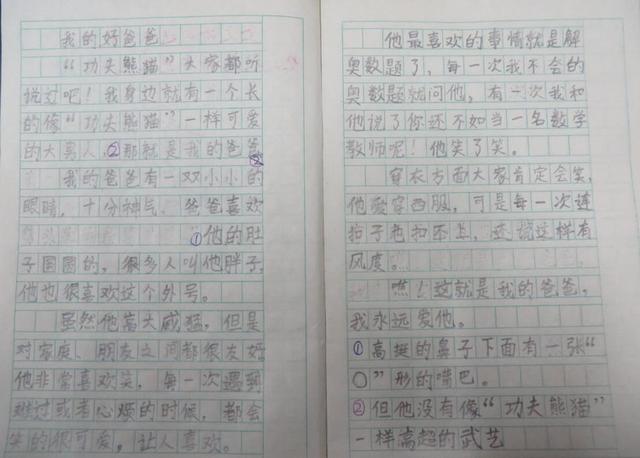 我的好爸爸
“功夫熊猫”大家都听
说过吧！我身边就有一个长
的像“功夫熊猫”一样可爱
的大男人②那就是我的爸爸
我的爸爸有一双小小的
眼睛，十分神气，爸爸喜欢
①他的肚
子圆圆的，很多人叫他胖子，
他也很喜欢这个外号。
虽然他高大威猛，但是
对家庭、朋友之间都很友好
他非常喜欢笑，每一次遇到
难过或者心烦的时候，都会
笑的很可爱，让人喜欢。
他最喜欢的事情就是解
奥数题了，每一次我不会的
奥数题就问他，有一次我和
他说了你还不如当一名数学
教师呢！他笑了笑。
穿衣方面大家肯定会笑，
他爱穿西服，可是每一次连
扣子也扣不上，还说这样有
风度。
嘿！这就是我的爸爸，
我永远爱他。
①高挺的鼻子下面有一张“
〇”形的嘴巴。
②但他没有像“功夫熊猫”
一样高超的武艺